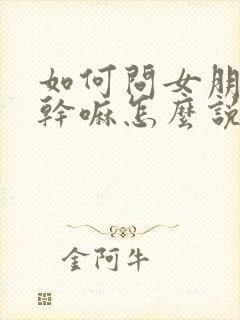 如何問女朋
幹嘛怎麼說
金阿牛